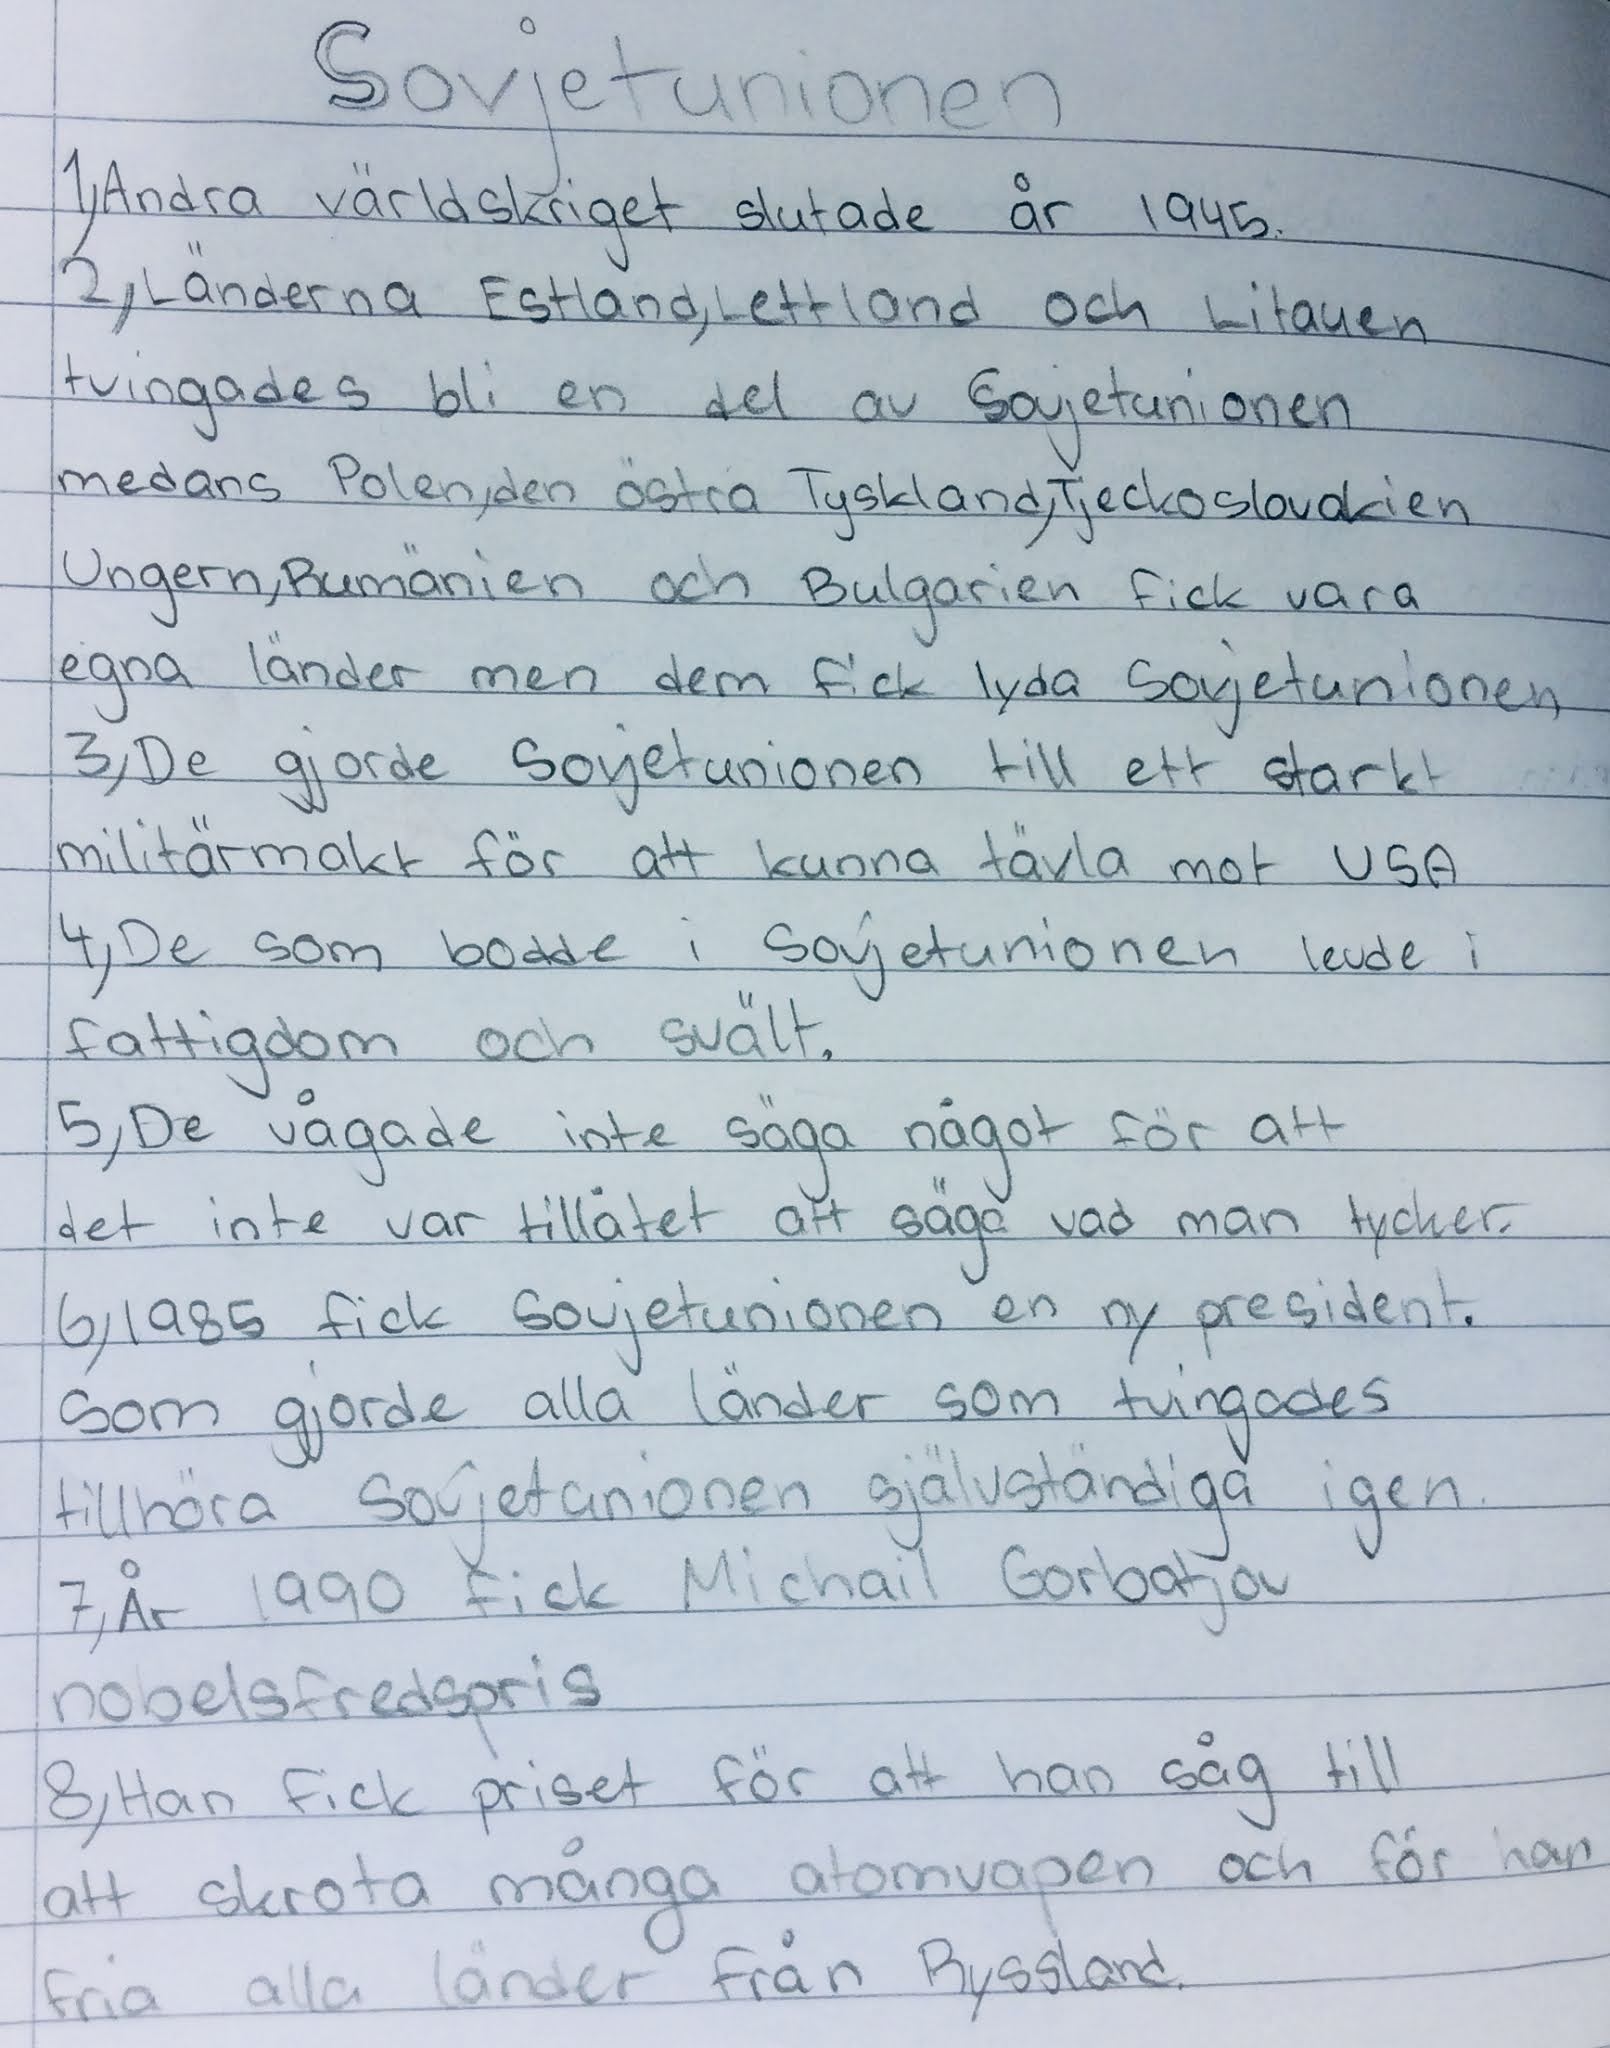 Sovjetunionen
1, Andra världskriget slutade år 1945.
2, Länderna Estland, Lettland och Litauen
tvingades bli en del av Sovjetunionen
medans Polen, den östra Tyskland, Tjeckoslovakien
Ungern, Rumänien och Bulgarien fick vara
egna länder men dem fick lyda Sovjetunionen
3, De gjorde Sovjetunionen till ett starkt
militärmakt för att kunna tävla mot USA
4, De som bodde i Sovjetunionen levde i
fattigdom och svält.
5, De vågade inte säga något för att
det inte var tillåtet att säga vad man tycker.
6, 1985 fick Sovjetunionen en ny president.
Som gjorde alla länder som tvingades
tillhöra Sovjetunionen självständiga igen.
7, År 1990 fick Michail Gorbatjov
nobelsfredspris
8, Han fick priset för att han såg till
att skrota många atomvapen och för han
fria alla länder från Ryssland.